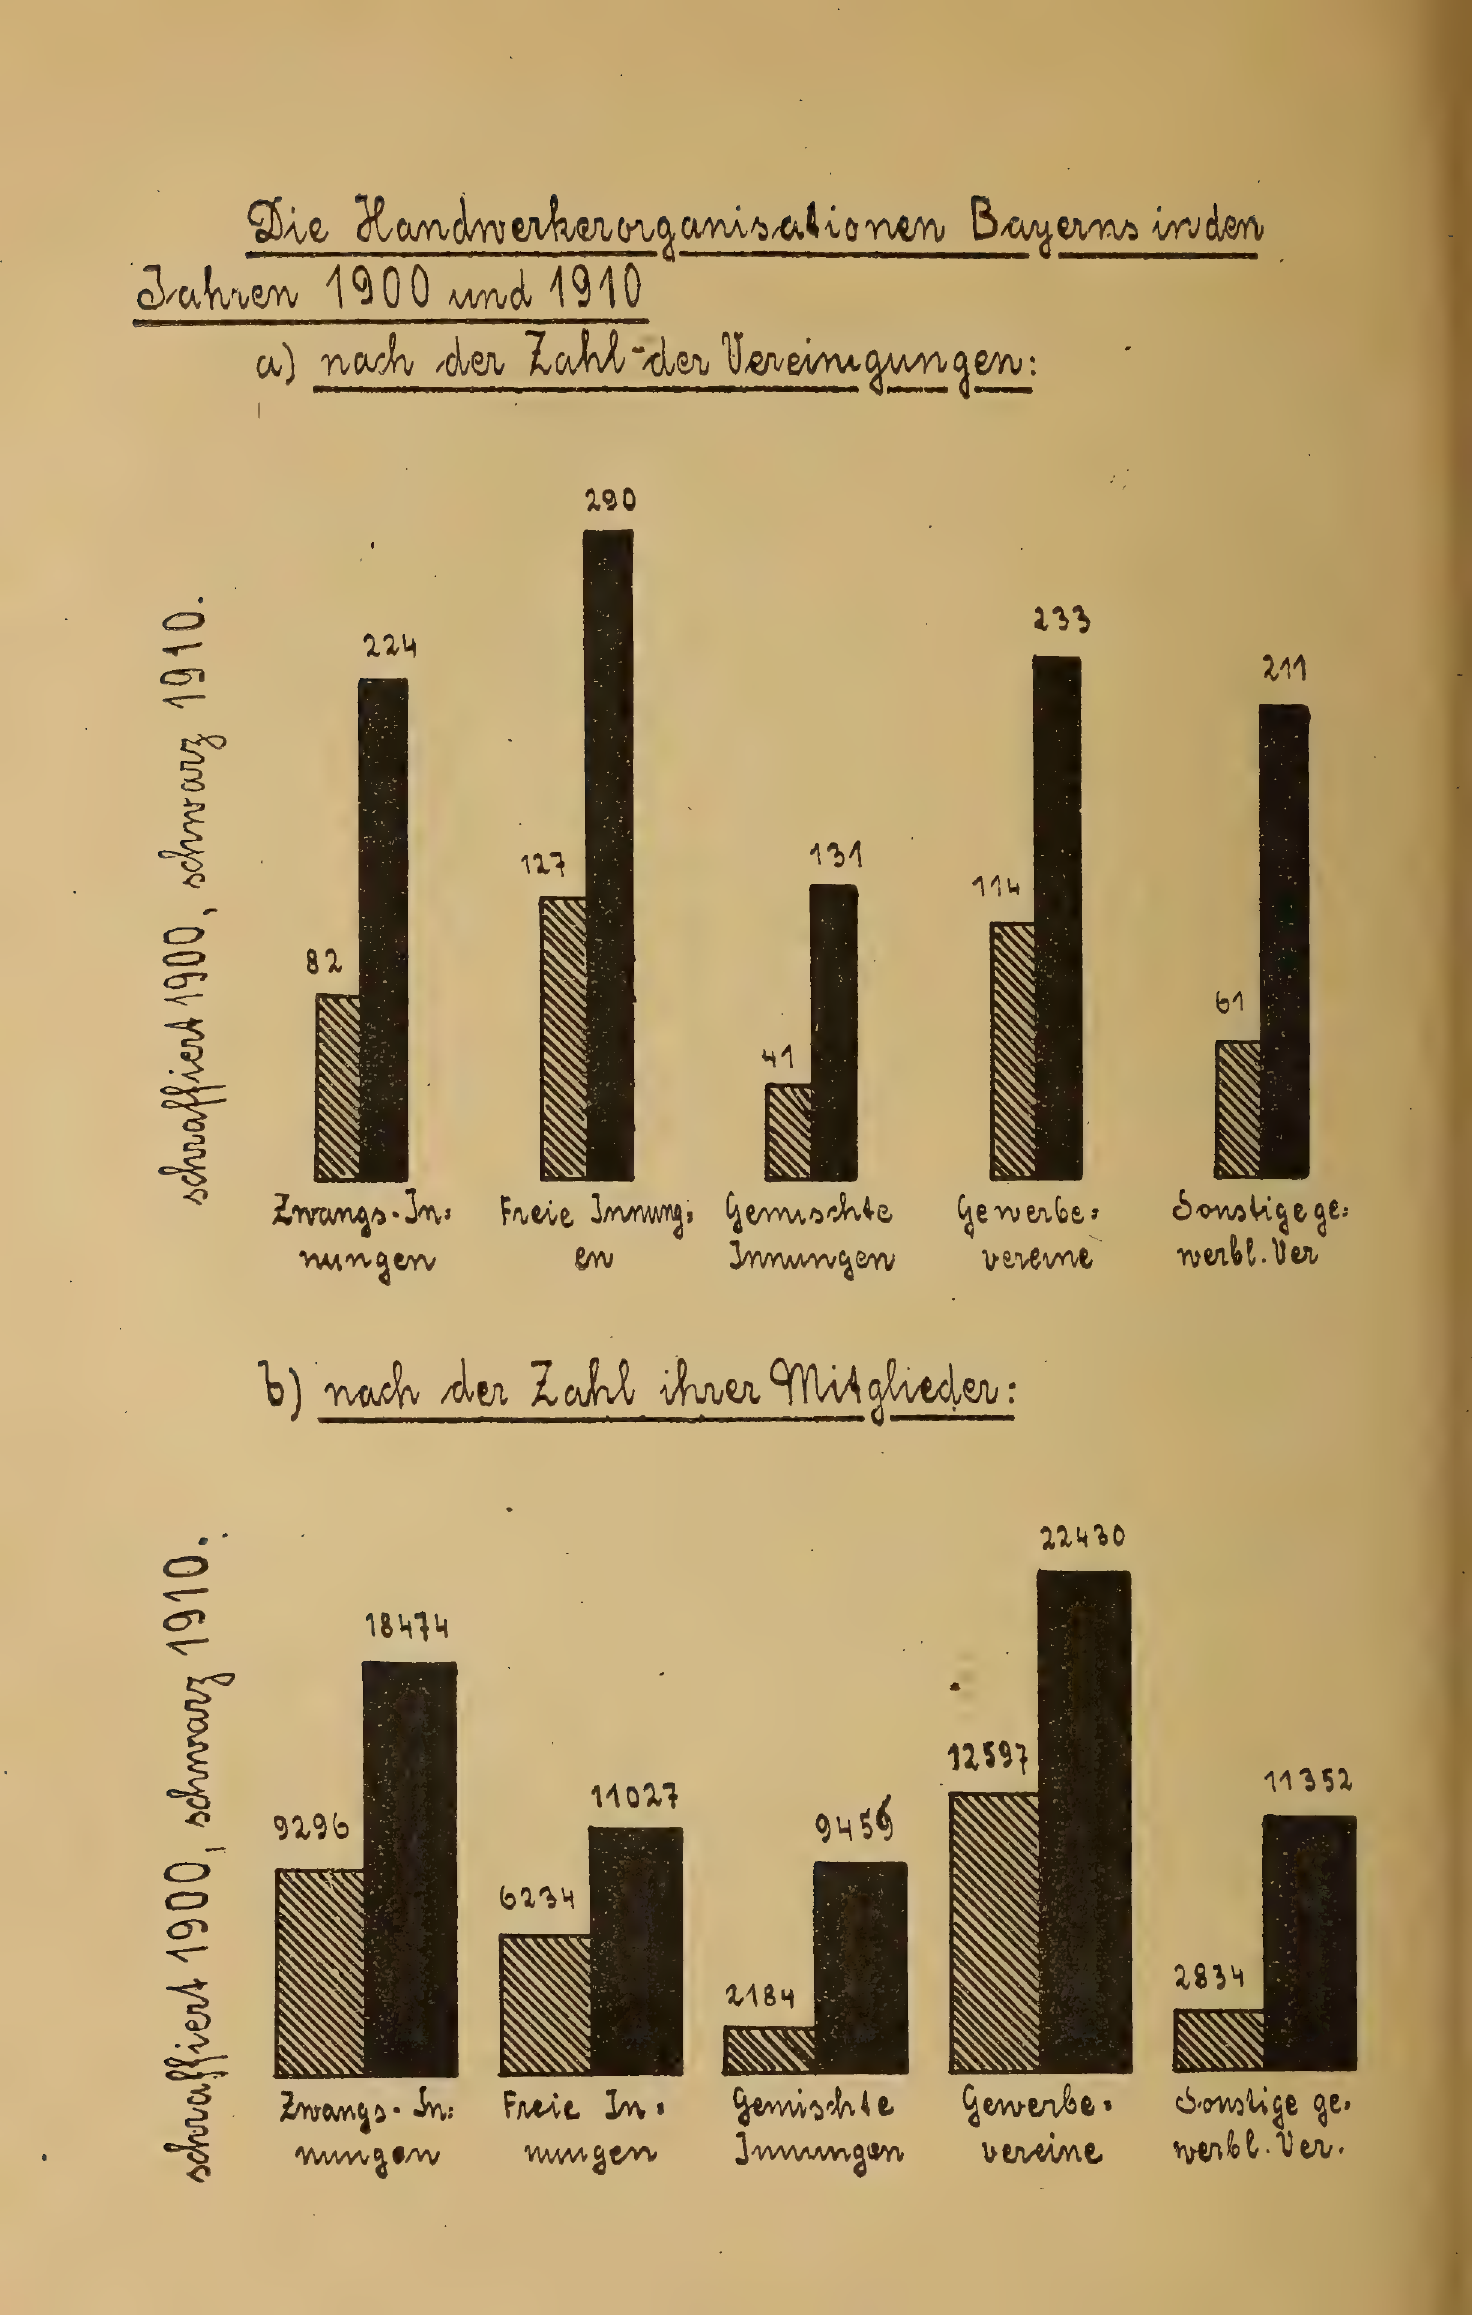 Die Handwerkerorganisationen Bayerns in den
Jahren 1900 und 1910
a) nach der Zahl der Vereinigungen:
schraffiert 1900, schwarz 1910.
82 224
127 290
41 131
114 233
61 211
Zwangs-In=
nungen
Freie Innung=
en
Gemischte
Innungen
Gewerbe=
vereine
Sonstige ge=
werbl. Ver
b) nach der Zahl ihrer Mitglieder:
schraffiert 1900, schwarz 1910.
9296 18474
6234 11027
2184
12597 22430
2834 11352
Zwangs-In=
nungen
Freie In=
nungen
Gemischte
Innungen
Gewerbe=
vereine
Sonstige ge=
werbl. Ver.